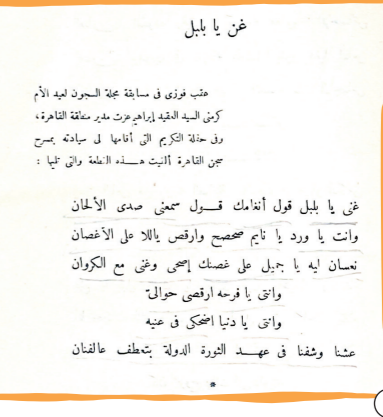 غن يا بلبل
عقب فوزى فى مسابقة مجلة السجون لعيد الأم
كرمنى السيد العقيد إبراهيم عزت مدير منطقة القاهرة ،
وفى حفلة التكريم التى أقامها لى سيادته بمسرح
سجن القاهرة ألقيت هـــذه القطعة والتى تليها :
غنى يا بلبل قول أنغامك قـــول سمعنى صدى الألحان
وانت يا ورد يا نايم صحصح وارقص ياللا على الأغصان
نعسان ليه يا جميل على غصنك إصحى وغنى مع الكروان
وانتى يا فرحه ارقصى حوالىّ
وانتى يا دنيا اضحكى فى عنيه
عشنا وشفنا فى عهـــد الثورة الدولة بتعطف عالفنان
*